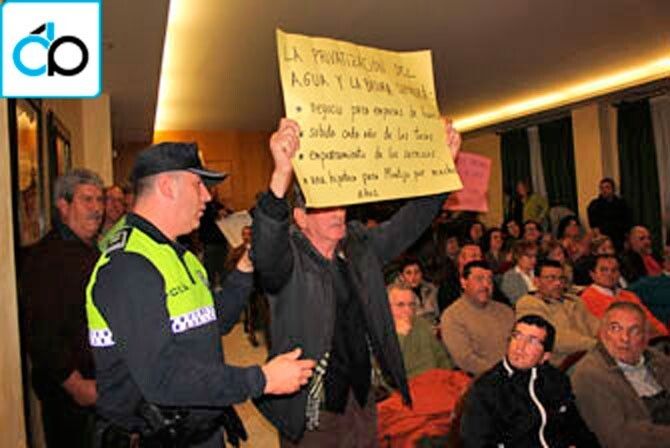 LA PRIVATIZACIÓN DEL
AGUA Y LA BASURA
negocio para empresas de
subida cada año de las tasas
empeoramiento de los servicios
una hipoteca para Montijo por muchos
años